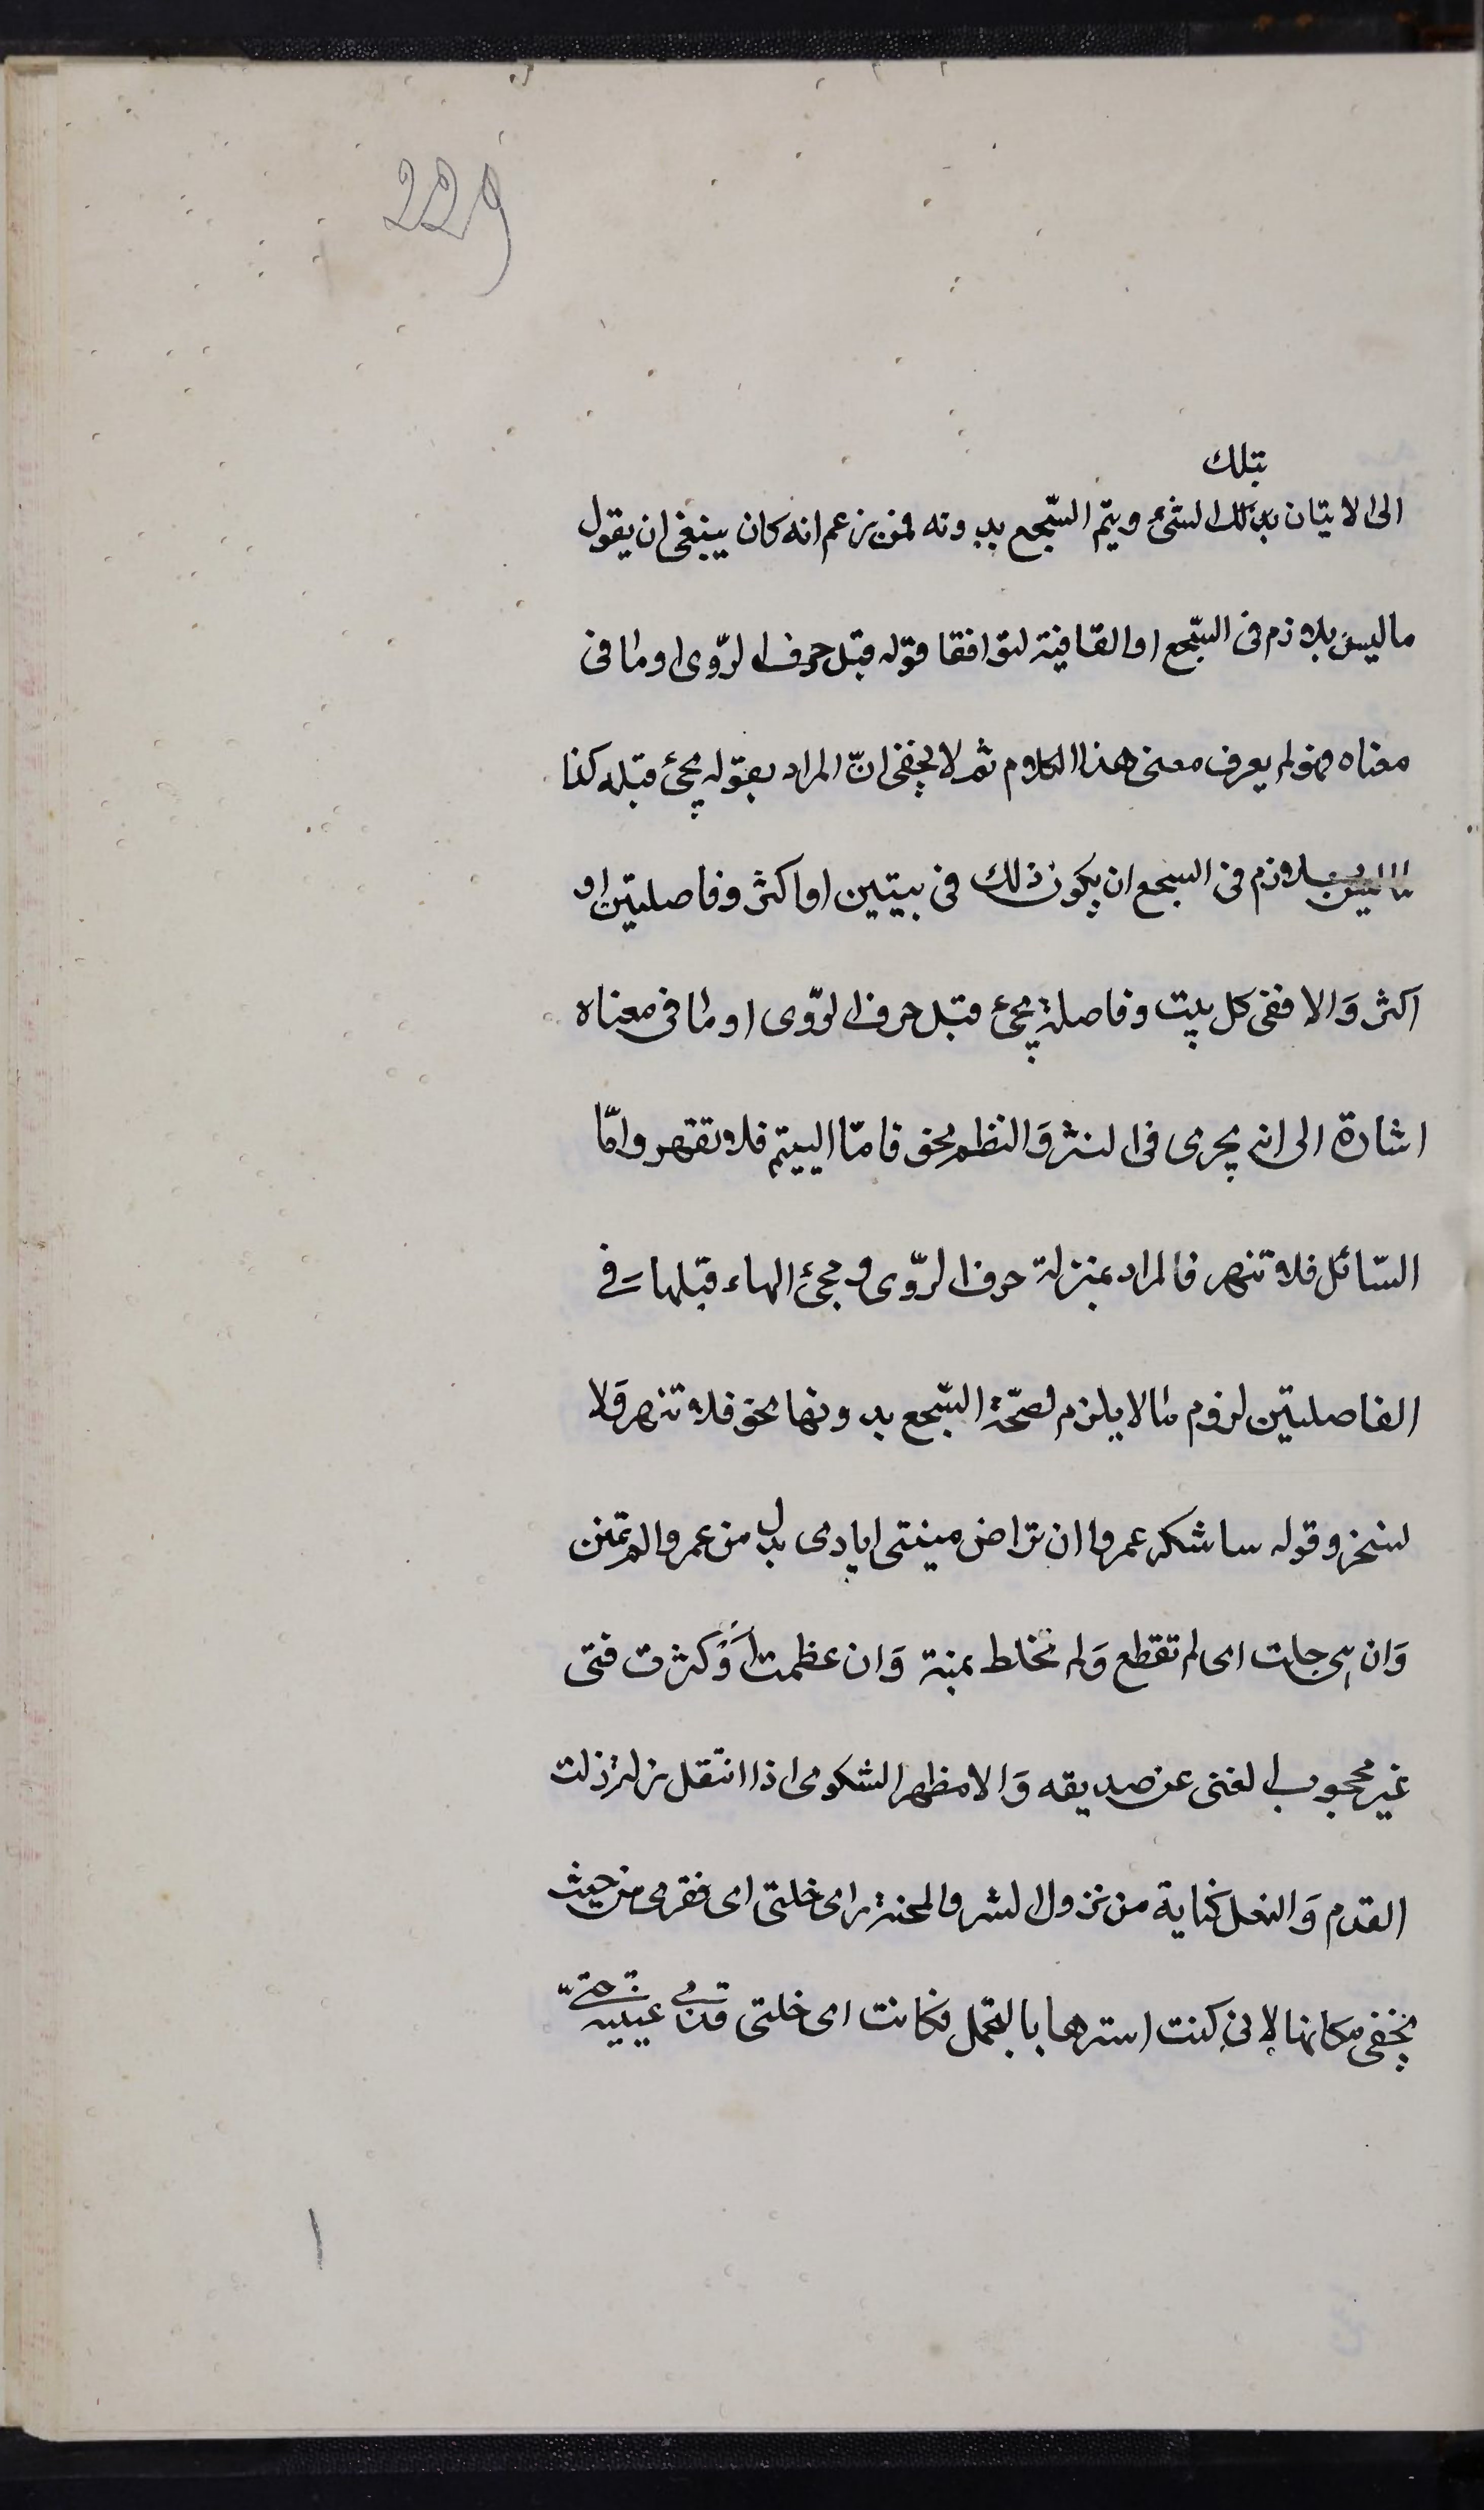 229
بتلك
الى الاتيان بذلك الشئ ويتم السّجع بدونه فمن زعم انه كان ينبغى ان يقول
ما ليس بلازم فى السّجع او القافية لتوافقا قوله قبل حرف الرّوى او ما فى
معناه فهو لم يعرف معنى هذا الكلام ثم لا يخفى انّ المراد بقوله يجئ قبله كذا
ما ليس بلازم فى السجع ان يكون ذلك فى بيتين او اكثر وفاصلتين او
اكثر وَالا ففى كل بيت وفاصلة يجئ قبل حرف الرّوى او ما فى معناه
اشارة الى انه يجرى فى النثر وَالنظم نحو فامّا اليتيم فلا تقهر وامّا
السّائل فلا تنهر فالراء بمنزلة حرف الرّوى و مجئ الهاء قبلها فى
الفاصلتين لزوم ما لا يلزم لصحّة السّجع بدونها نحو فلا تنهر وَلا
تسخر وقوله ساشكر عمروا ان تراخى منيتى ايادى بدل من عمرو الم تمنن
وَان هى جلت اى لم تقطع وَلم تخلط بمنة وَان عظمت اَوْ كثرت فتى
غير محجوب الغنى عن صديقه وَالا مظهر الشكوى اذا انتقل زلة زلت
القدم وَالنعل كناية من نزول الشر والمحنة راى خلتى اى فقرى من حيث
يخفى مكانها لانى كنت استرها بالتجمل فكانت اى خلتى قذى عينيه حتى
١